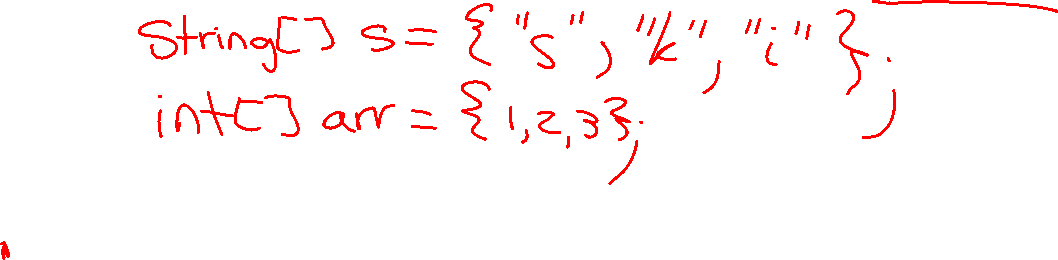 String[] s = {"s", "k", "i"};
int[] arr = {1,2,3};